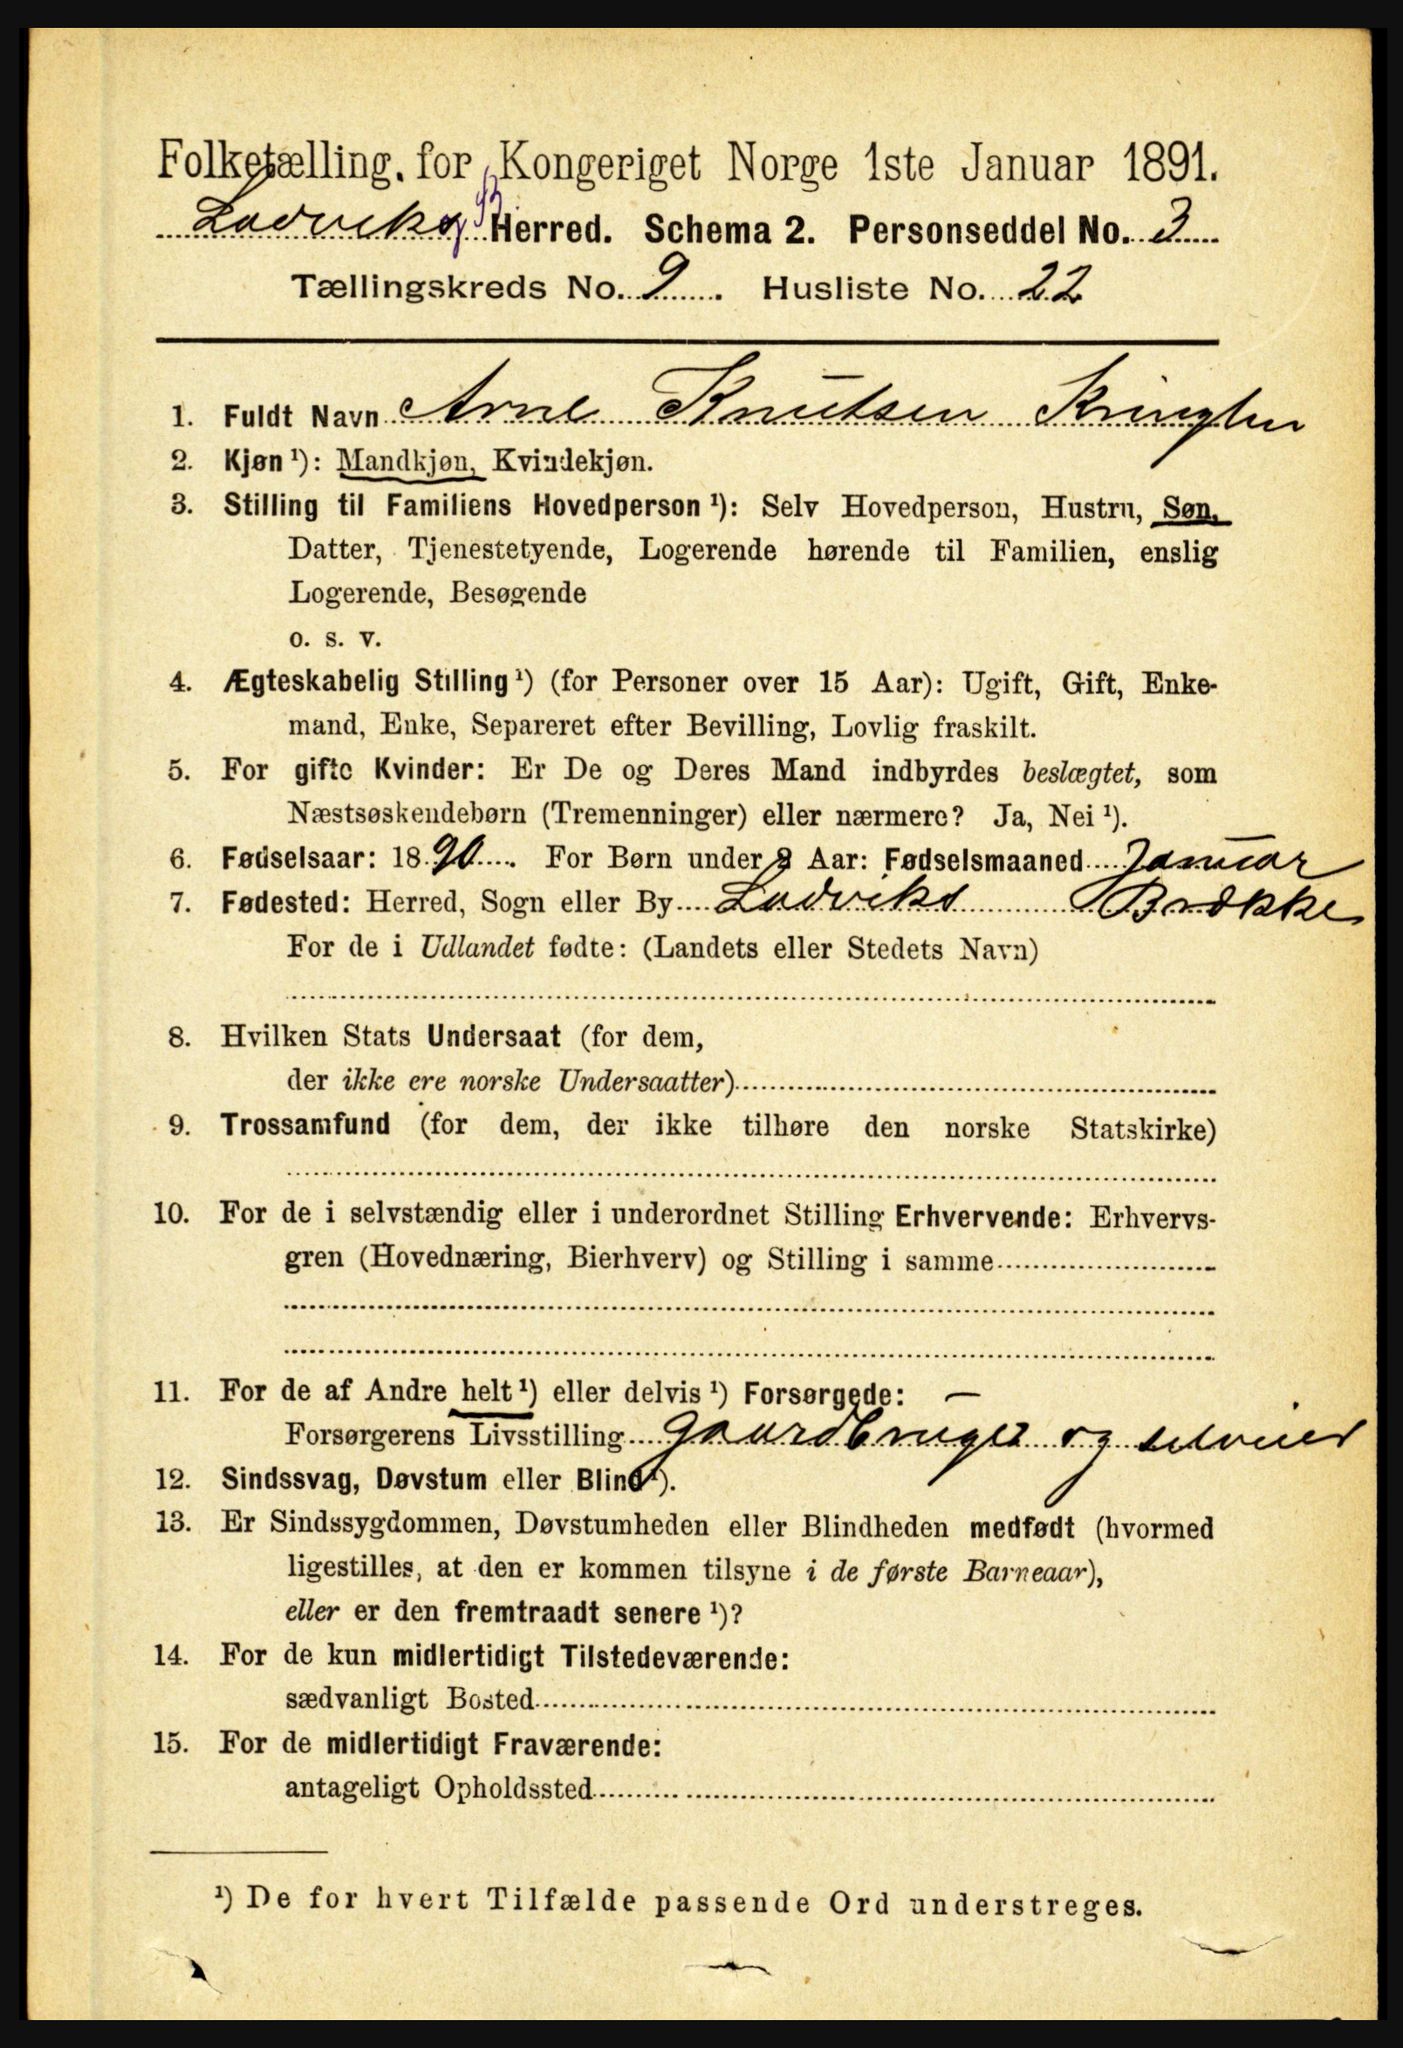 Folketælling for Kongeriget Norge 1ste Januar 1891.
Ladviks og B. Herred. Schema 2. Personseddel No. 3
Tællingskreds No. 9. Husliste No. 22
1. Fuldt Navn Arne Knutsen
2. Kjøn ¹): Mandkjøn, Kvindekjøn.
3. Stilling til Familiens Hovedperson ¹): Selv Hovedperson, Hustru, Søn,
Datter, Tjenestetyende, Logerende hørende til Familien, enslig
Logerende, Besøgende
o. s. v.
4. Ægteskabelig Stilling ¹) (for Personer over 15 Aar): Ugift, Gift, Enke-
mand, Enke, Separeret efter Bevilling, Lovlig fraskilt.
5. For gifte Kvinder: Er De og Deres Mand indbyrdes beslægtet, som
Næstsøskendebørn (Tremenninger) eller nærmere? Ja, Nei ¹).
6. Fødselsaar: 1890. For Børn under Aar: Fødselsmaaned Januar
7. Fødested: Herred, Sogn eller By Ladviks Brække
For de i Udlandet fødte: (Landets eller Stedets Navn)
8. Hvilken Stats Undersaat (for dem,
der ikke ere norske Undersaatter)
9. Trossamfund (for dem, der ikke tilhøre den norske Statskirke)
10. For de i selvstændig eller i underordnet Stilling Erhvervende: Erhvervs-
gren (Hovednæring, Bierhverv) og Stilling i samme
11. For de af Andre helt ¹) eller delvis ¹) Forsørgede: —
Forsørgerens Livsstilling Gaardbruger og selveier
12. Sindssvag, Døvstum eller Blind ¹).
13. Er Sindssygdommen, Døvstumheden eller Blindheden medfødt (hvormed
ligestilles, at den er kommen tilsyne i de første Barneaar),
eller er den fremtraadt senere ¹)?
14. For de kun midlertidigt Tilstedeværende:
sædvanligt Bosted
15. For de midlertidigt Fraværende:
antageligt Opholdssted
¹) De for hvert Tilfælde passende Ord understreges.